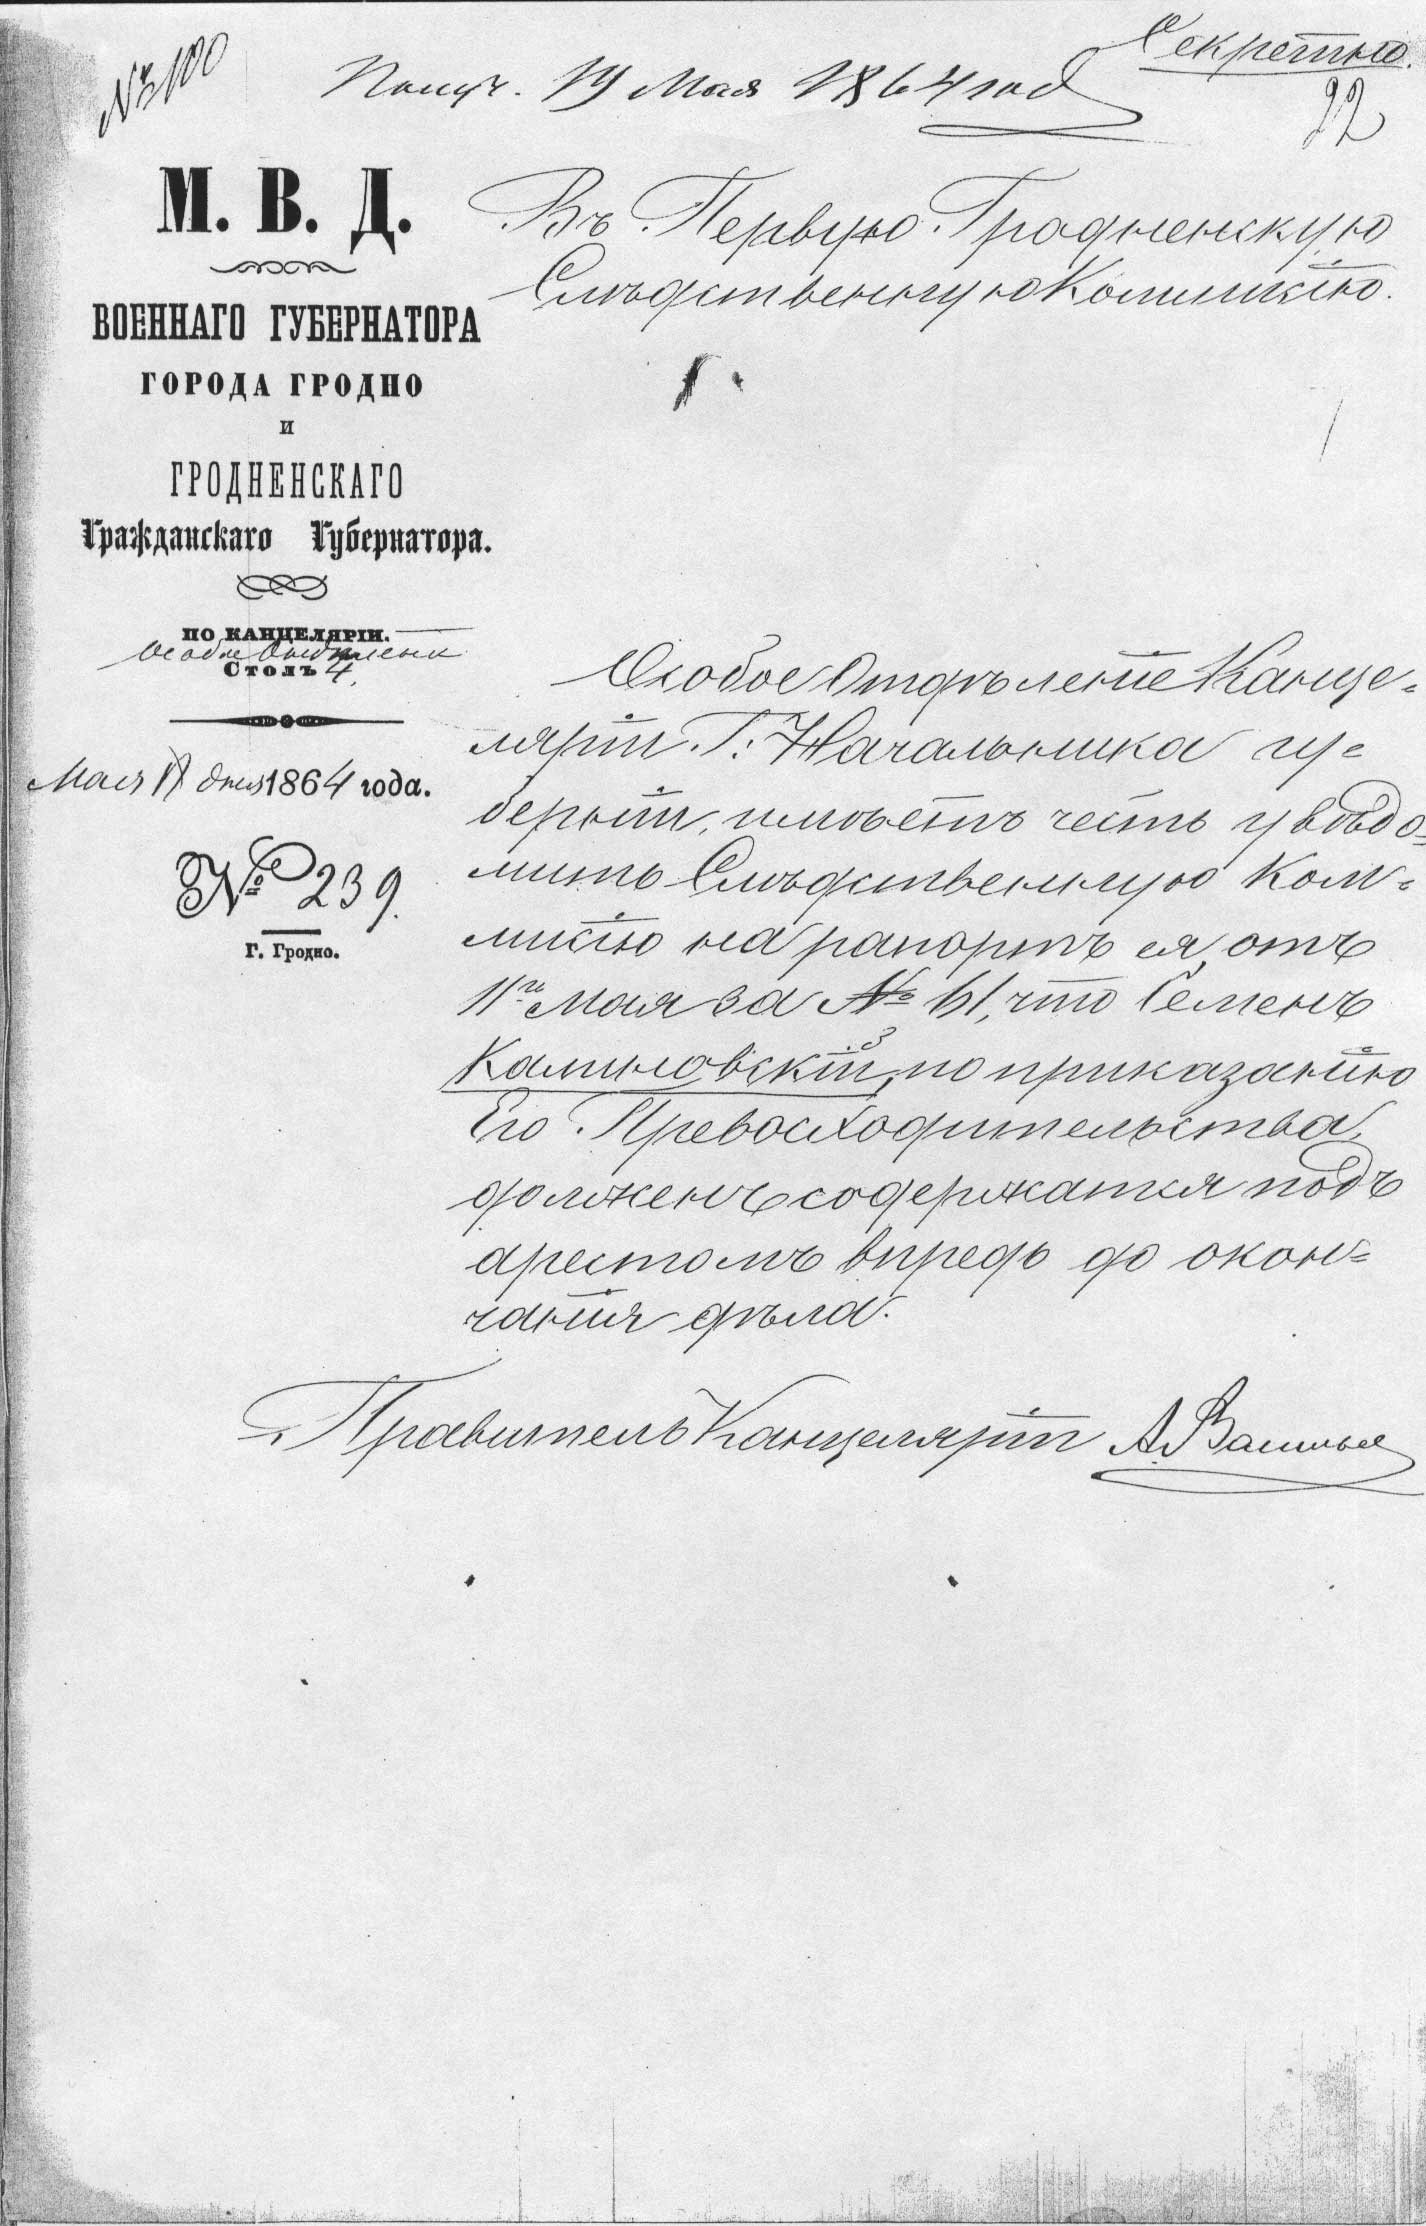 № 100
Секретно.
Получ. 19 Мая 1864 год
22
М. В. Д.
ВОЕННАГО ГУБЕРНАТОРА
ГОРОДА ГРОДНО
И
ГРОДНЕНСКАГО
Гражданскаго Губернатора.
ПО КАНЦЕЛЯРІИ.
Особое Отделени
Столъ 4.
Мая дня 1864 года.
№ 239.
Г. Гродно.
Въ Первую Гродненскую
Слѣдственную Коммисію.
Особое Отдѣленіе Канце-
ляріи Г. Начальника гу-
берніи, имѣетъ честь увѣдо-
мить Слѣдственную Ком-
мисію на рапортъ ея отъ
11го Мая за № 61, что Семенъ
Калиновскій, по приказанію
Его Превосходительства,
долженъ содержатся подъ
арестомъ впредь до окон-
чанія дѣла.
Правитель Канцеляріи А. Васильев